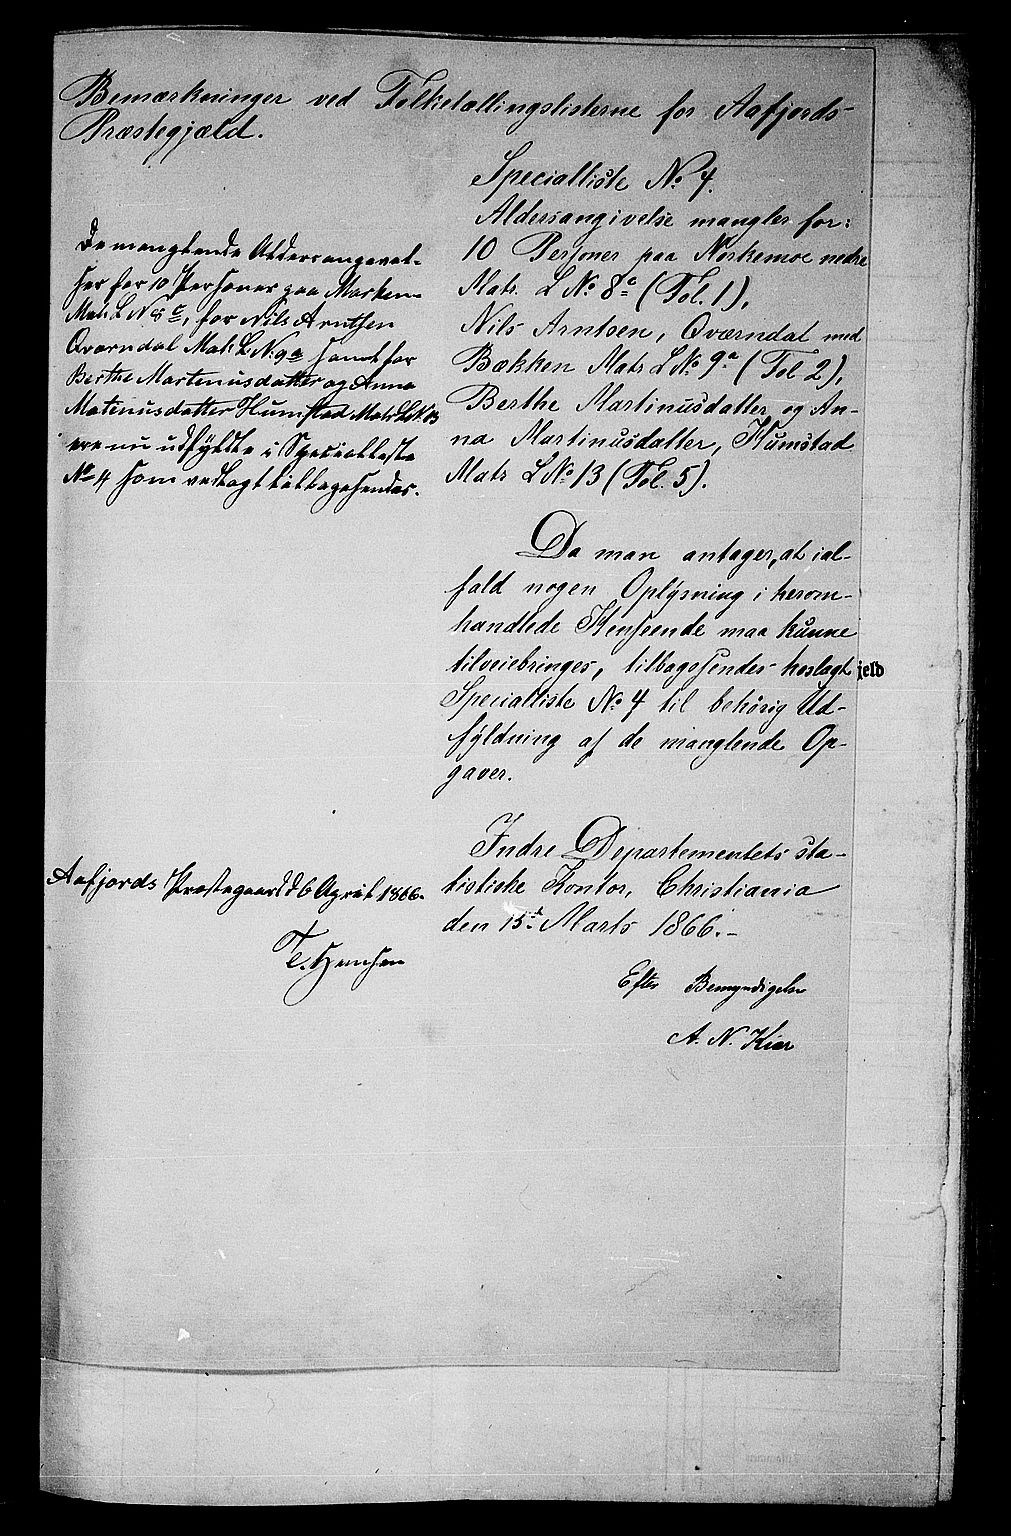 Bemærkninger ved Folketællingslisterne for Aafjords
Præstegjæld.
Specialliste No 4.
Aldersangivelse mangler for:
10 Personer paa Norkemoe nedre
Matr. L No 8a (Fol. 1),
Nils Arntsen, Qværndal med
Bækken Matr L No 9a (Fol 2),
Berthe Martinusdatter og An-
na Martinusdatter, Humstad
Matr L No 13 (Fol. 5).
Da man antager, at ial-
fald nogen Oplysning i herom-
handlede Henseende maa kunne
tilveiebringes, tilbagesendes hoslagt
Specialliste No 4 til behørig Ud-
fyldning af de manglende Op-
gaver.
Indre Departementets sta-
tistiske Kontor, Christiania
den 15de Marts 1866.-
Efter Bemyndigelse
A. N. Kiær
De manglende Aldersangivel-
ser for 10 Personer paa
Matr. L N 8a, for Nils Arntsen
Qværndal Matr. L N. 9a samt for
Berthe Martinusdatter og Anna
Matinusdatter Humstad Matr. L. N. 13
ere nu udfyldte i Specialliste
No 4 som vedlagt tilbagesendes.
Aafjords Præstegaard d 6 April 1866.
jeld